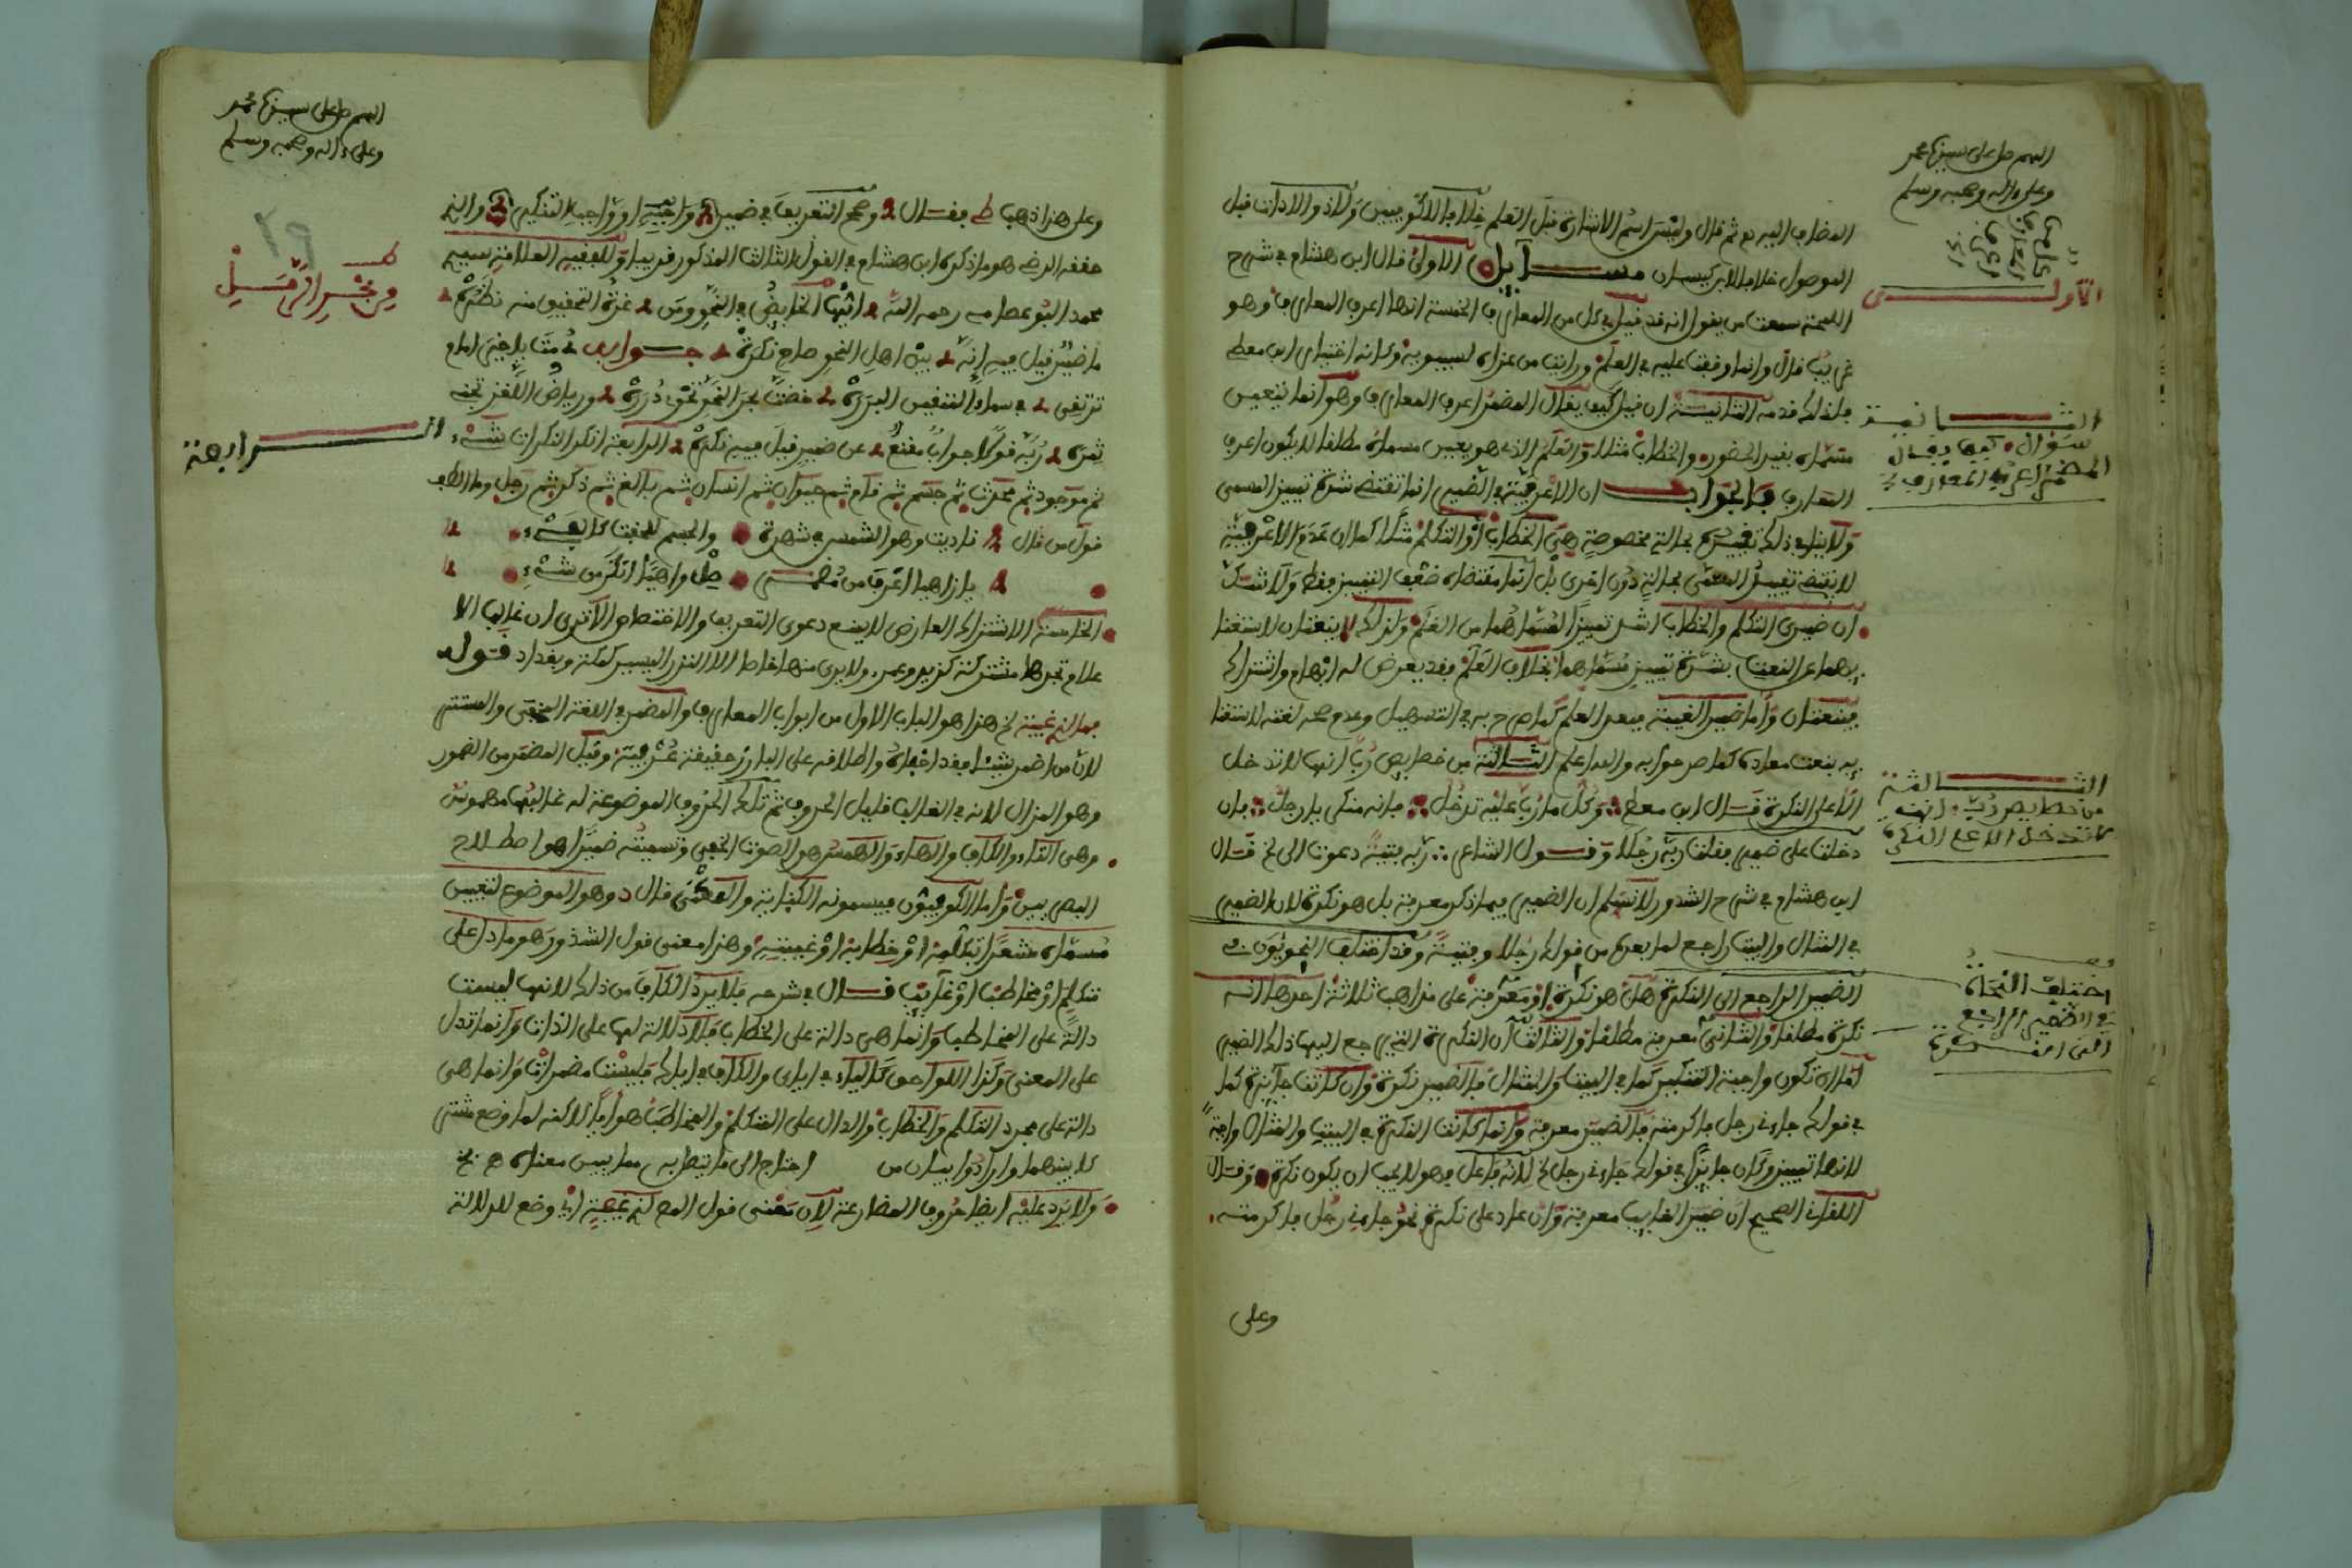 اللهم صل على سيدنا محمد
وعلى ءاله وصحبه وسلم
المضاف اليه ثم قال وليس اسم الاشارة قبل العلم خلافا للكوفيين ولا ذو الاداة قبل
الموصول خلافا لابن كيسان مسايل الاولى قال ابن هشام في شرح
اللمحة سمعت من يقول انه قد قيل في كل من المعارف الخمسة انها اعرف المعارف وهو
غريب قال وانما وقفت عليه في العلم ورايت من عزاه لسيبويه وكانه اختيار ابن معط
فلذلك قدمه الثانية ان قيل كيف يقال المضمر اعرف المعارف وهو انما يتعين
مسماه بقيد الحضور والخطاب مثلا والعلم الذي هو يعين مسماه مطلقا لا يكون اعرف
المعارف فالجواب ان الاعرفية في الضمير انما تقتضي شدة تمييز المسمى
ولا ينافي ذلك تقييده بحالة مخصوصة هي الخطاب او التكلم مثلا كما ان عدم الاعرفية
لا يقتضي تقييد المسمى بحالة دون اخرى بل انما مقتضاه ضعف التمييز فقط ولا شك
ان ضميري التكلم والخطاب اشد تمييزا لمسماهما من العلم ولذلك لا ينعتان لاستغنا
يهما عن النعت بشدة تمييز مسماهما بخلاف العلم فقد يعرض له ابهام واشتراك
فينعت واما ضمير الغيبة فبعد العلم كما صرح به في التسهيل وعدم صحة نعته لاستغنا
يه بنعت معاده كما صرحوا به والله اعلم الثالثة من خصايص رب انها لا تدخل
الا على النكرة قال ابن معط وكل ما رب عليه تدخل فانه منكر يا رجل فان
دخلت على ضمير فقلت ربه رجلا وقول الشاعر ربه فتية دعوت الى الخ قال
ابن هشام في شرح الشذور لا نسلم ان الضمير فيما ذكر معرفة بل هو نكرة لان الضمير
في المثال والبيت راجع لما بعده من قولك رجلا وفتية وقد اختلف النحويون في
الضمير الراجع الى النكرة هل هو نكرة او معرفة على مذاهب ثلاثة احدها انه
نكرة مطلقا والثاني معرفة مطلقا والثالث ان النكرة التي يرجع اليها ذلك الضمير
اما ان تكون واجبة التنكير كما في البيت والمثال فالضمير نكرة وان كانت جايزته كما
في قولك جاءني رجل فاكرمته فالضمير معرفة وانما كانت النكرة في البيت والمثال واجبة
لانها تمييز وكان جايزا في قولك جاءني رجل الخ لانه فاعل وهو لا يجب ان يكون نكرة وقال
اللقاني الصحيح ان ضمير الغايب معرفة وان عاد على نكرة نحو جاءني رجل فاكرمته
وعلى
الاولى
الثانية
سؤال كيف يقال
المضمر اعرف المعارف
الثالثة
من خصايص رب انها
لا تدخل الا على النكرة
اختلف النحاة
في الضمير الراجع
الى النكرة
اللهم صل على سيدنا محمد
وعلى ءاله وصحبه وسلم
من بحر الرمل
الرابعة
وعلى هذا ذهب بقال وصحح التعريف في ضمير واجب او واجب التنكير والذي
حققه الرضي هو ما ذكره ابن هشام في القول الثالث المذكور قريبا وللفقيه العلامة سيدي
محمد رحمه الله ايها الخايض في النحو ومن غرة التحقيق منه نظرة
ما ضمير قيل فيه انه بين اهل النحو صاح نكرة جوابه دمت يا امام
ترتقي في سماء النفيس خضت بحر النحو تحوي درره ورياض اللغز تجني
ثمره ربه قولا جواب مقنع عن ضمير قيل فيه نكرة الرابعة انكر النكرات شيء
ثم موجود ثم محدث ثم جسم ثم نام ثم حيوان ثم انسان ثم بالغ ثم ذكر ثم رجل وما الطف
قول من قال ناديت وهو الشمس في شهرة والجسم للخفة كالفيء
يا زاهيا اعرف من مضمر صل واهيا انكر من شيء
الخامسة الاشتراك العارض لا يمنع دعوى التعريف والاختصاص الا ترى ان غالب الا
علام تجدها مشتركة كزيد وعمر ولا يرى منها خاصا الا النزر اليسير كمكة وبغداد قوله
فما لذي غيبة الخ هذا هو الباب الاول من ابواب المعارف والمضمر في اللغة المخفى والمستتر
لان من اضمر شيئا فقد اخفاه واطلاقه على البارز حقيقة عرفية وقيل المضمر من الضمور
وهو الهزال لانه في الغالب قليل الحروف ثم تلك الحروف الموضوعة له غالبها مهموس
وهي التاء والكاف والهاء والهمس هو الصوت الخفي وتسميته ضميرا هو اصطلاح
البصريين واما الكوفيون فيسمونه الكناية والمكنى قال د وهو الموضوع لتعيين
مسماه مشعرا بتكلمه او خطابه او غيبته وهذا معنى قول الشذور وهو ما دل على
متكلم او مخاطب او غايب قال في شرحه فلا يرد الكاف من ذلك لانها ليست
دالة على المخاطب وانما هي دالة على الخطاب فلا دلالة لها على الذات وانما تدل
على المعنى وكذا اللواحق كالياء في اياي والكاف في اياك فليست مضمرات وانما هي
دالة على مجرد التكلم والخطاب والدال على المتكلم والمخاطب هو ايا لاكنه لما وضع مشتر
كا بينهما وارادوا بيان من احتاج الى ما يتصل به مما يبين معناه
ولا يرد عليه ايضا حروف المضارعة لان معنى قول المص لذي غيبة اي وضع للدلالة